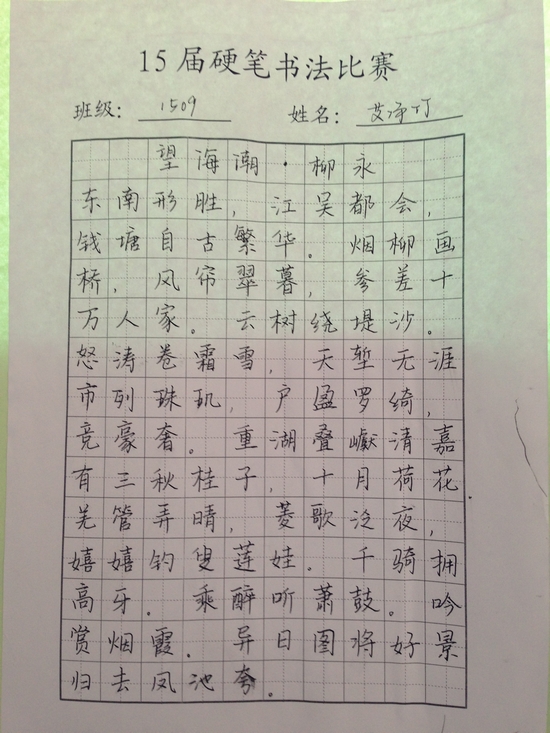 15届硬笔书法比赛
班级：1509 姓名：艾泽灯
望海潮·柳永
东南形胜，江吴都会，
钱塘自古繁华。烟柳画
桥，风帘翠暮，参差十
万人家。云树绕堤沙。
怒涛卷霜雪，天堑无涯
市列珠玑，户盈罗绮，
竞豪奢。重湖叠巘清嘉
有三秋桂子，十月荷花
羌管弄晴，菱歌泛夜，
嬉嬉钓叟莲娃。千骑拥
高牙。乘醉听萧鼓。吟
赏烟霞。异日图将好景
归去凤池夸。